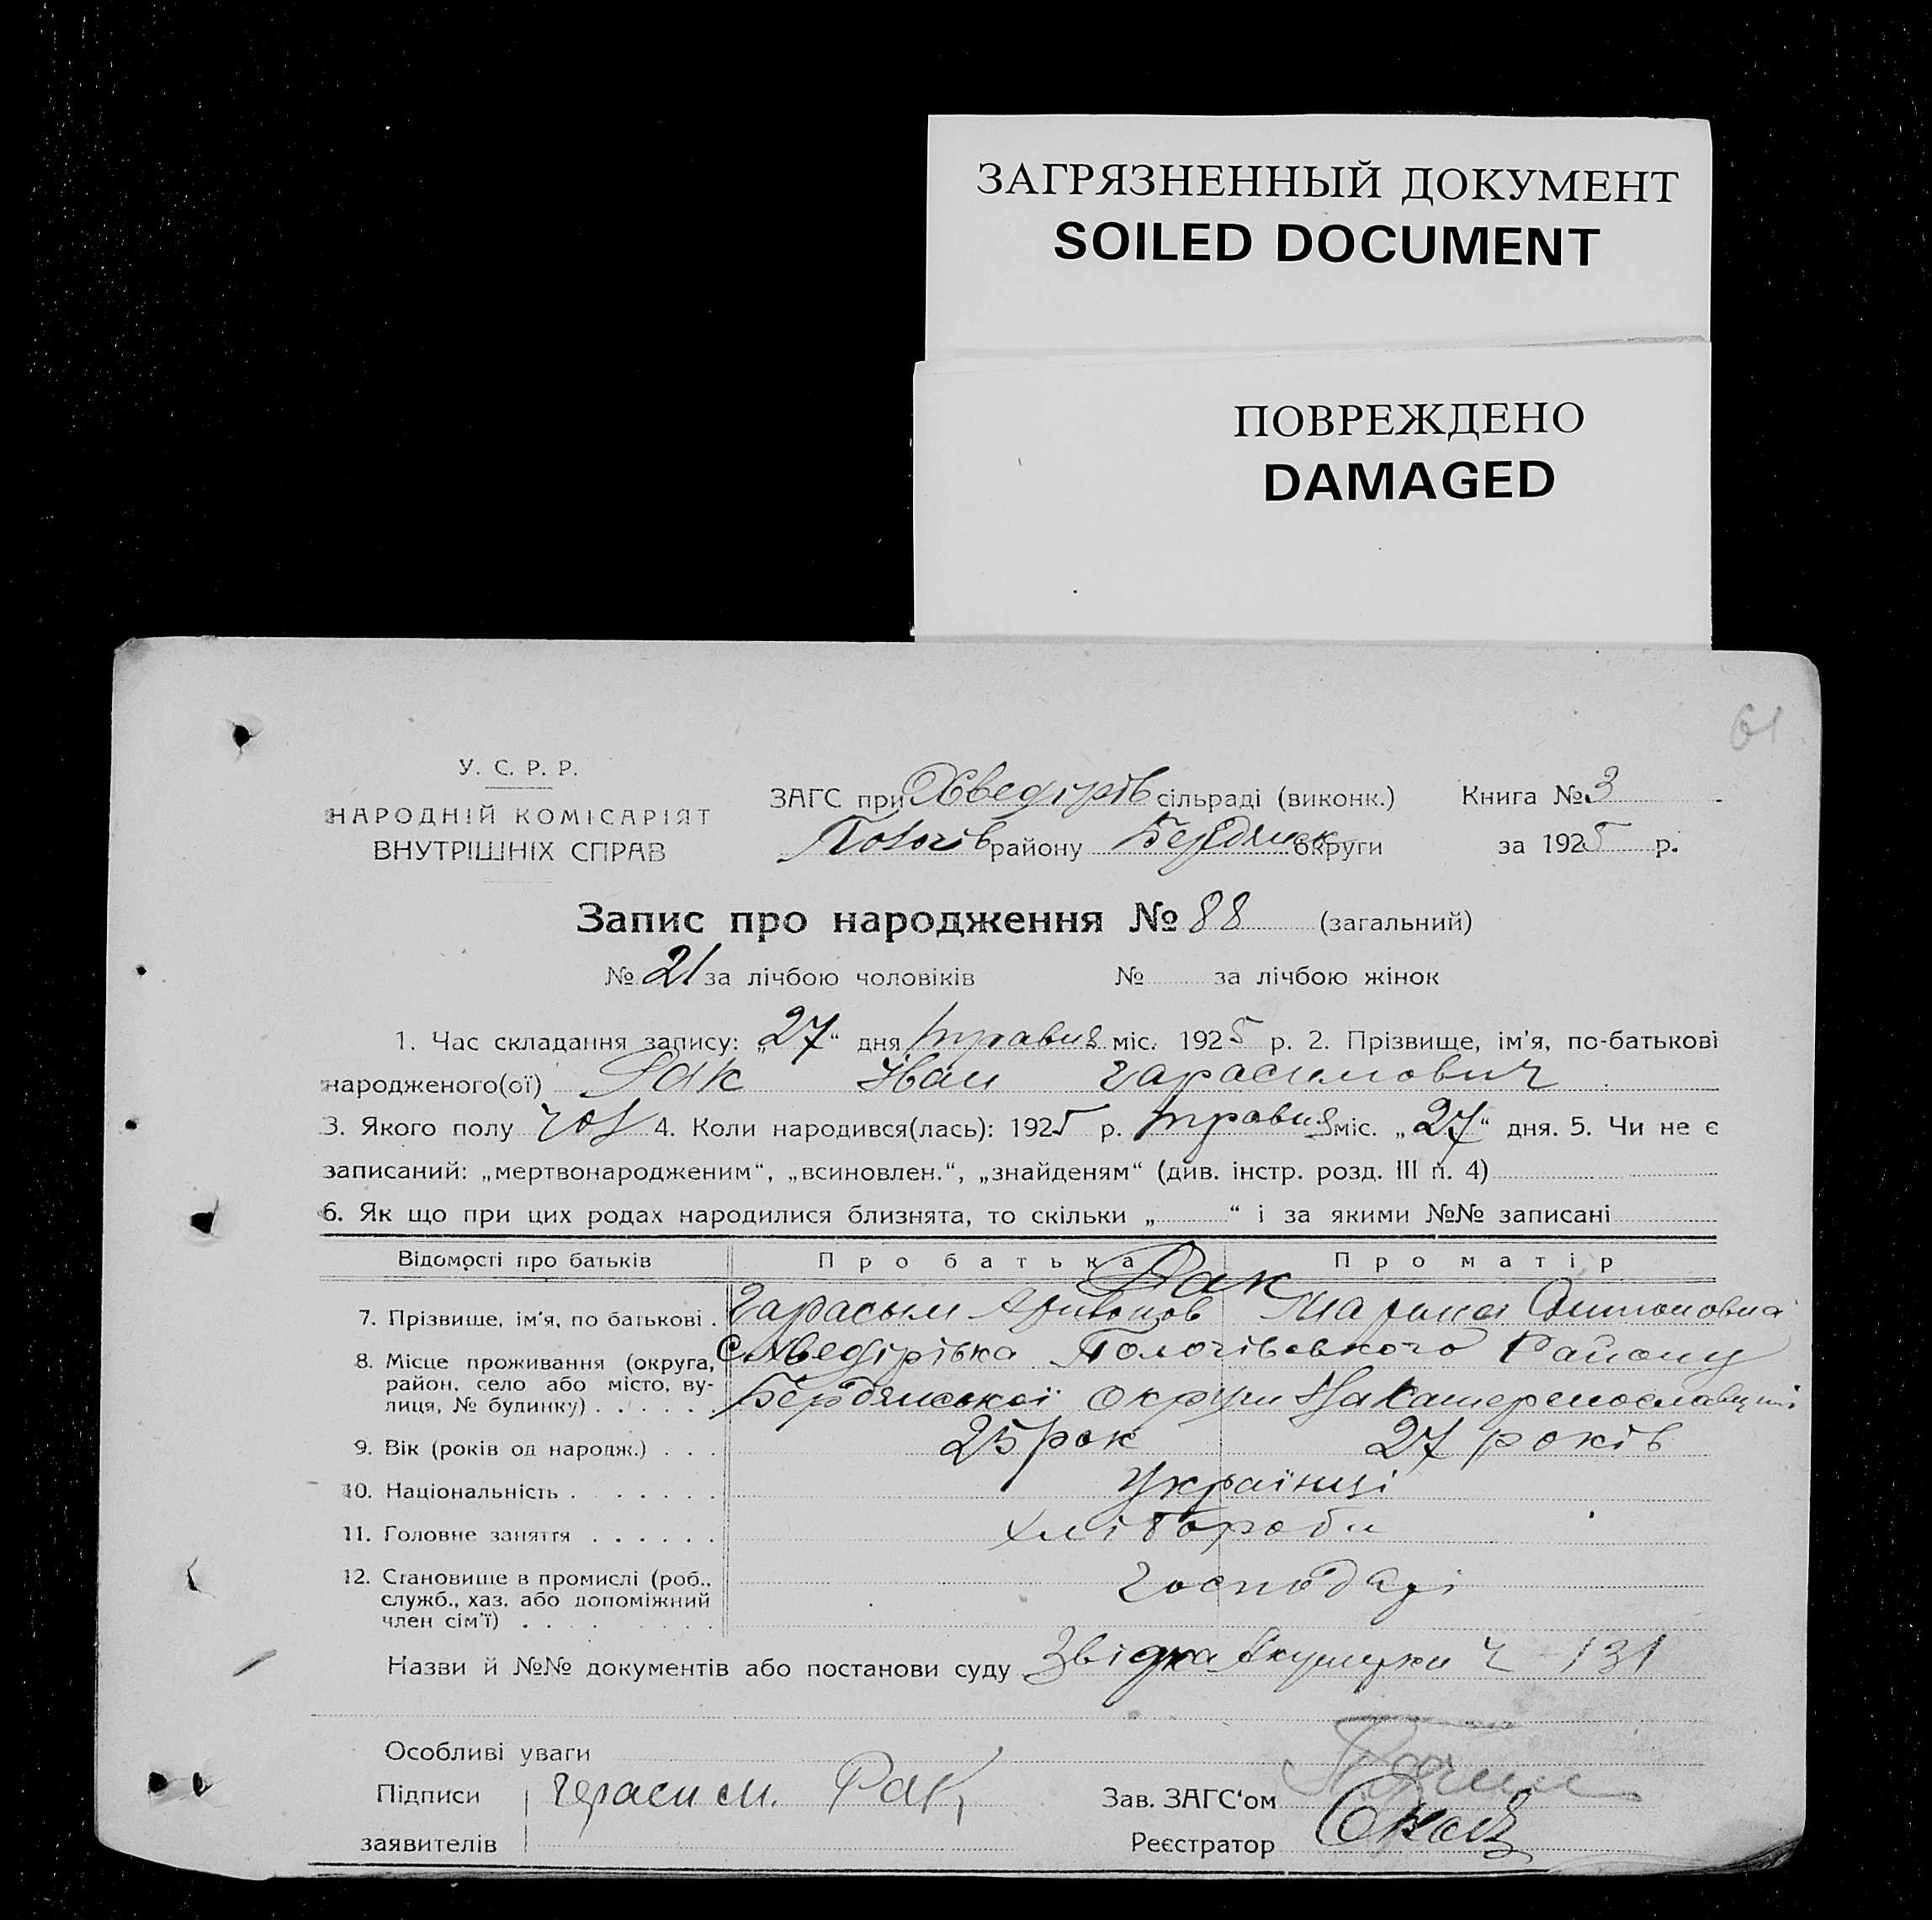 ЗАГРЯЗНЕННЫЙ ДОКУМЕНТ
SOILED DOCUMENT
ПОВРЕЖДЕНО
DAMAGED
61
У. С. Р. Р.
НАРОДНІЙ КОМІСАРІЯТ
ВНУТРІШНІХ СПРАВ
ЗАГС при Хведірів сільраді (виконк.) Книга № 3
Пологів району Бердянск округи за 1925 р.
Запис про народження № 88 (загальний)
№ 21 за лічбою чоловіків № за лічбою жінок
1. Час складання запису: „27“ дня травня міс. 1925 р. 2. Прізвище, ім'я, по-батькові
народженого(ої) Рак Іван Гарасимович
3. Якого полу чол 4. Коли народився(лась): 1925 р. травня міс. „27“ дня. 5. Чи не є
записаний: „мертвонародженим“, „всиновлен.“, „знайденям“ (див. інстр. розд. III п. 4)
6. Як що при цих родах народилися близнята, то скільки „ “ і за якими №№ записані
Відомості про батьків Про батька Про матір
Рак
7. Прізвище, ім'я, по батькові . Гарасым Антонов Марина Антоновна
8. Місце проживання (округа, район, село або місто, вулиця, № будинку) . . . . . . с. Хведірівка Пологівського Району
Бердянської округи
9. Вік (років од народж.) . . . 25 рок 27 років
10. Національність . . . . . . . Українці
11. Головне заняття . . . . . . хлібороби
12. Становище в промислі (роб., служб., хаз. або допоміжний член сім'ї) . . . . господарі
Назви й №№ документів або постанови суду Звідка Акушерки Ч 131
Особливі уваги
Підписи Герасим. Рак
Зав. ЗАГС'ом
заявителів
Реєстратор